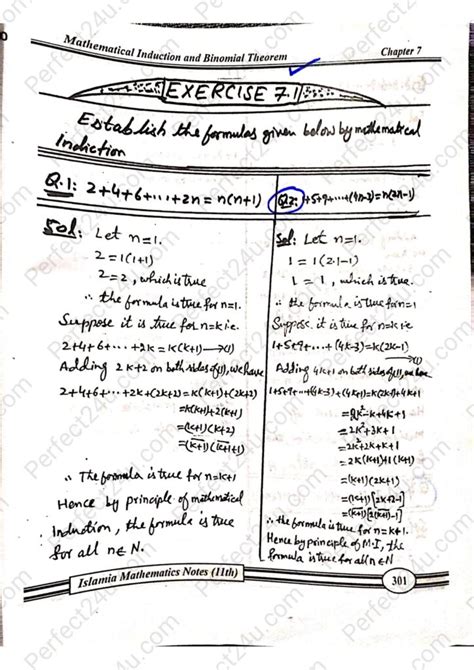 Mathematical Induction and Binomial Theorem
Chapter 7
EXERCISE 7.1
Establish the formulas given below by mathematical
Indiction
Q.1: 2+4+6+...+2n = n(n+1)
Sol: Let n=1.
2 = 1(1+1)
2 = 2, which is true
∴ the formula is true for n=1.
Suppose it is true for n=k i.e.
2+4+6+...+2k = k(k+1) →(1)
Adding 2k+2 on both sides of (1), we have
2+4+6+...+2k+(2k+2) = k(k+1)+(2k+2)
=k(k+1)+2(k+1)
=(k+1)(k+2)
=(k+1)(k+1+1)
∴ The formula is true for n=k+1
Hence by principle of mathematical
Induction, the formula is true
for all n∈N.
Q2: 1+5+9+...+(4n-3)=n(2n-1)
Sol: Let n=1.
1 = 1(2·1-1)
1 = 1, which is true.
∴ the formula is true for n=1
Suppose it is true for n=k i.e
1+5+9+...+(4k-3)=k(2k-1)
→(1)
Adding 4k+1 on both sides of (1), we have
1+5+9+...+(4k-3)+(4k+1)=k(2k-1)+4k+1
=2k²-k+4k+1
=2k²+3k+1
=2k²+2k+k+1
=2k(k+1)+1(k+1)
=(k+1)(2k+1)
=(k+1)[2k+2-1]
=(k+1)[2(k+1)-1]
∴ the formula is true for n=k+1.
Hence by principle of M.I, the
formula is true for all n∈N
Islamia Mathematics Notes (11th)
301
Perfect24u.com